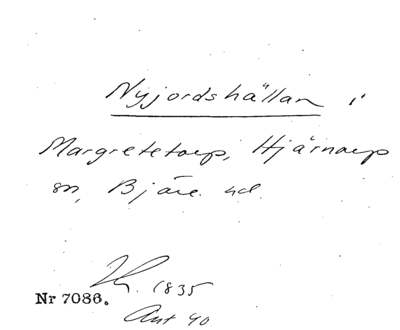 Nyjordshällan i
Margretetorp, Hjärnarp
sn, Bjäre hd.
1835
Nr 7086.
Ant 40